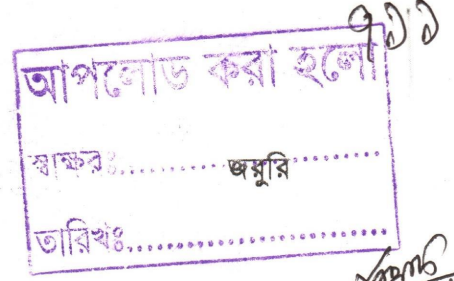 ৭১১
আপলোড করা হলো
স্বাক্ষরঃ.................... জরুরি................
তারিখঃ........................................